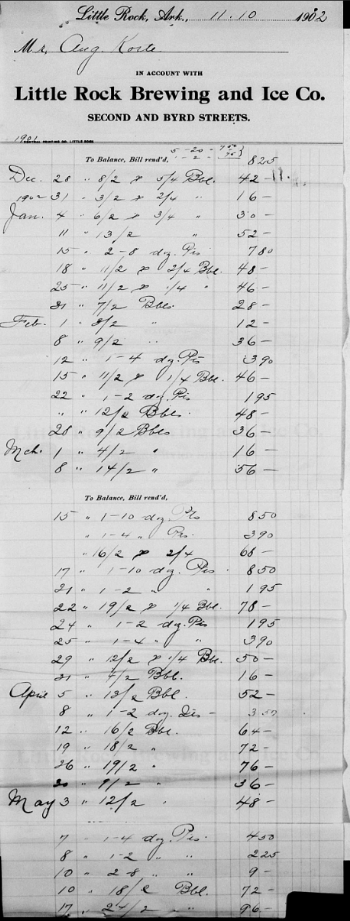 Little Rock, Ark., 11.10 1902
Mr. Aug.
IN ACCOUNT WITH
Little Rock Brewing and Ice Co.
SECOND AND BYRD STREETS.
1901
To Balance, Bill rend'd, 825
Dec. 28 " 8/2 & 5/4 Bbl. 42 -
1902 31 " 3/2 & 2/4 " 16 -
Jan. 4 " 6/2 & 3/4 / 30 -
11 " 13/2 " 52 -
15 " 2-8 dz. Pts 780
18 " 11/2 & 2/4 Bbl 48 -
25 " 11/2 & 1/4 " 46 -
31 " 7/2 Bbls 28 -
Feb. 1 " 3/2 " 12 -
8 " 9/2 " 36 -
12 " 1-4 dz. Pts 390
15 " 11/2 & 1/4 Bbl. 46 -
22 " 1-2 dz. Pts 195
" " 12/2 Bbls 48 -
28 " 9/2 Bbls 36 -
Mch. 1 " 4/2 " 16 -
8 " 14/2 " 56 -
To Balance, Bill rend'd,
15 " 1-10 dz. Pts 850
" 1-4 " Pts 390
" 16/2 & 2/4 68 -
17 " 1-10 dz. Pts 850
21 " 1-2 " " 195
22 " 19/2 & 1/4 Bbl. 78 -
24 " 1-2 dz. Pts 195
25 " 1-4 " " 390
29 " 12/2 & 1/4 Bbl. 50 -
31 " 4/2 Bbl. 16 -
April 5 " 13/2 Bbl. 52 -
8 " 1-2 dz.
12 " 16/2 Bbl. 64 -
19 " 18/2 " 72 -
26 " 19/2 " 76 -
30 " 9/2 " 36 -
May 3 " 12/2 " 48 -
7 " 1-4 dz. Pts. 450
8 " 1-2 " " 225
10 " 2-8 " " 9 -
10 " 18/2 Bbl. 72 -
17 " 24/2 " 96 -